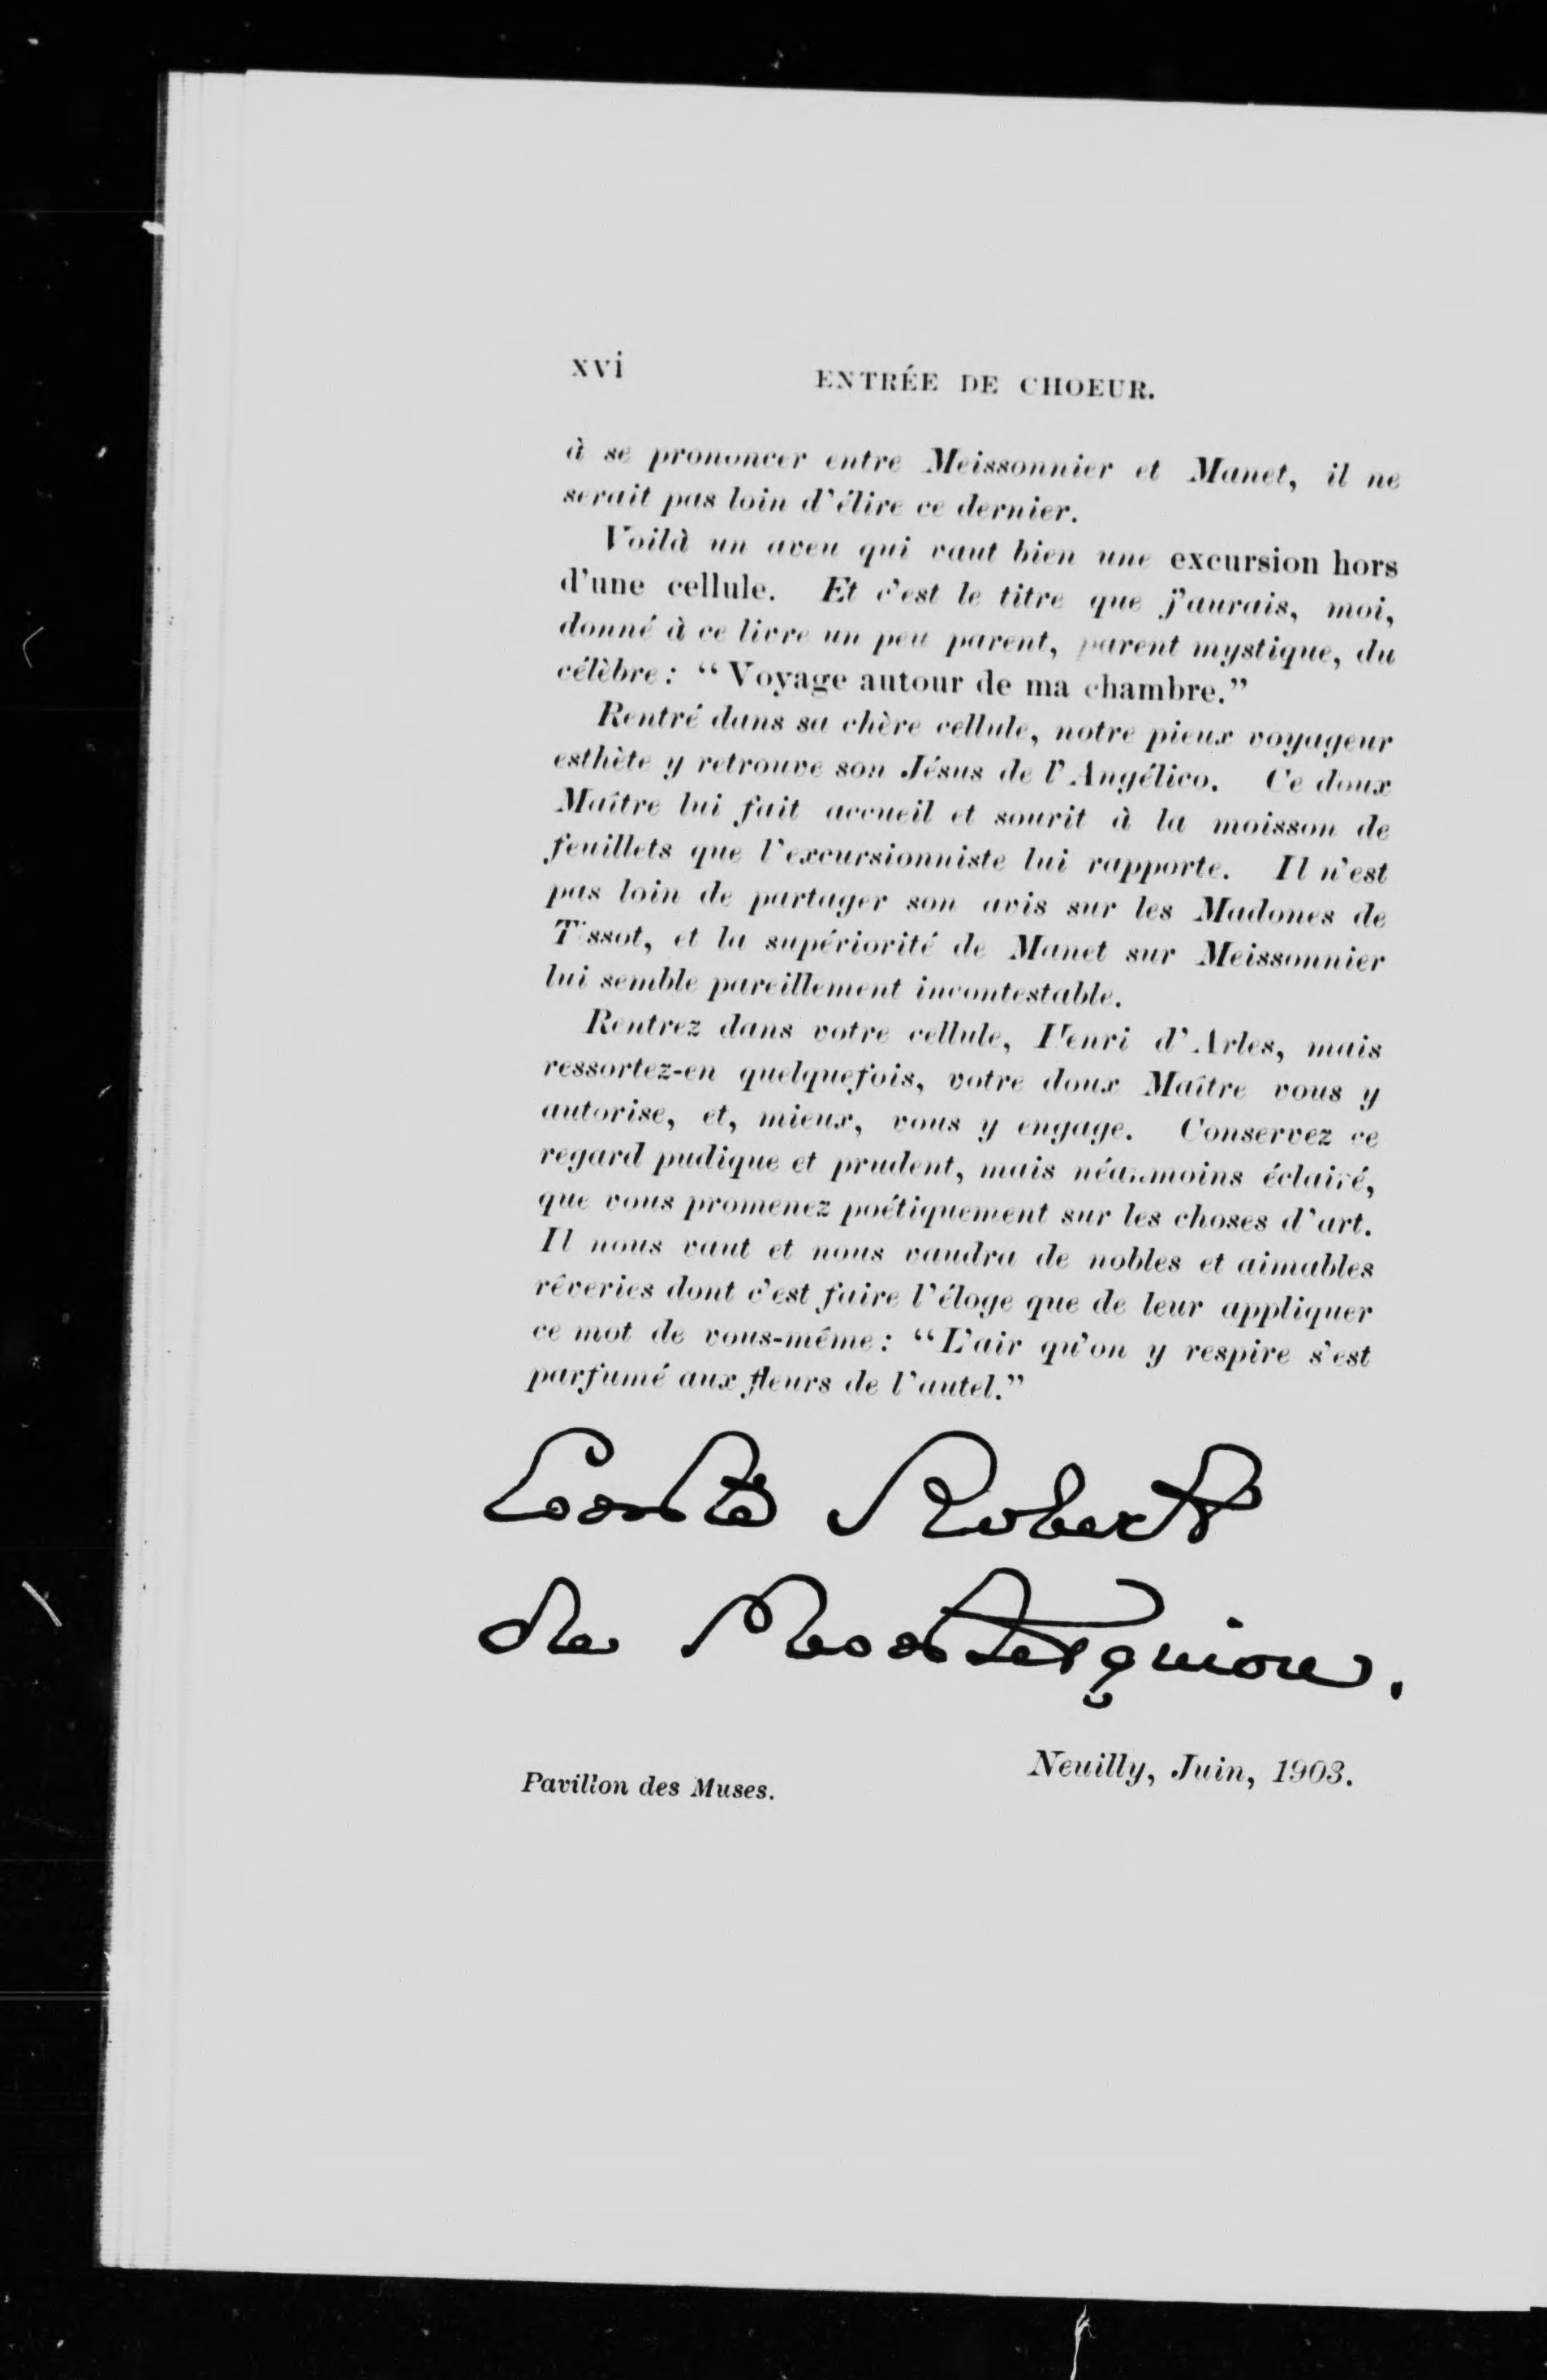 xvi ENTRÉE DE CHOEUR.
à se prononcer entre Meissonnier et Manet, il ne
serait pas loin d'élire ce dernier.
Voilà un aveu qui vaut bien une excursion hors
d'une cellule. Et c'est le titre que j'aurais, moi,
donné à ce livre un peu parent, parent mystique, du
célèbre: “Voyage autour de ma chambre.”
Rentré dans sa chère cellule, notre pieux voyageur
esthète y retrouve son Jésus de l'Angélico. Ce doux
Maître lui fait accueil et sourit à la moisson de
feuillets que l'excursionniste lui rapporte. Il n'est
pas loin de partager son avis sur les Madones de
Tissot, et la supériorité de Manet sur Meissonnier
lui semble pareillement incontestable.
Rentrez dans votre cellule, Henri d'Arles, mais
ressortez-en quelquefois, votre doux Maître vous y
autorise, et, mieux, vous y engage. Conservez ce
regard pudique et prudent, mais néanmoins éclairé,
que vous promenez poétiquement sur les choses d'art.
Il nous vaut et nous vaudra de nobles et aimables
rêveries dont c'est faire l'éloge que de leur appliquer
ce mot de vous-même: “L'air qu'on y respire s'est
parfumé aux fleurs de l'autel.”
Comte Robert
de Montesquiou.
Neuilly, Juin, 1903.
Pavillon des Muses.